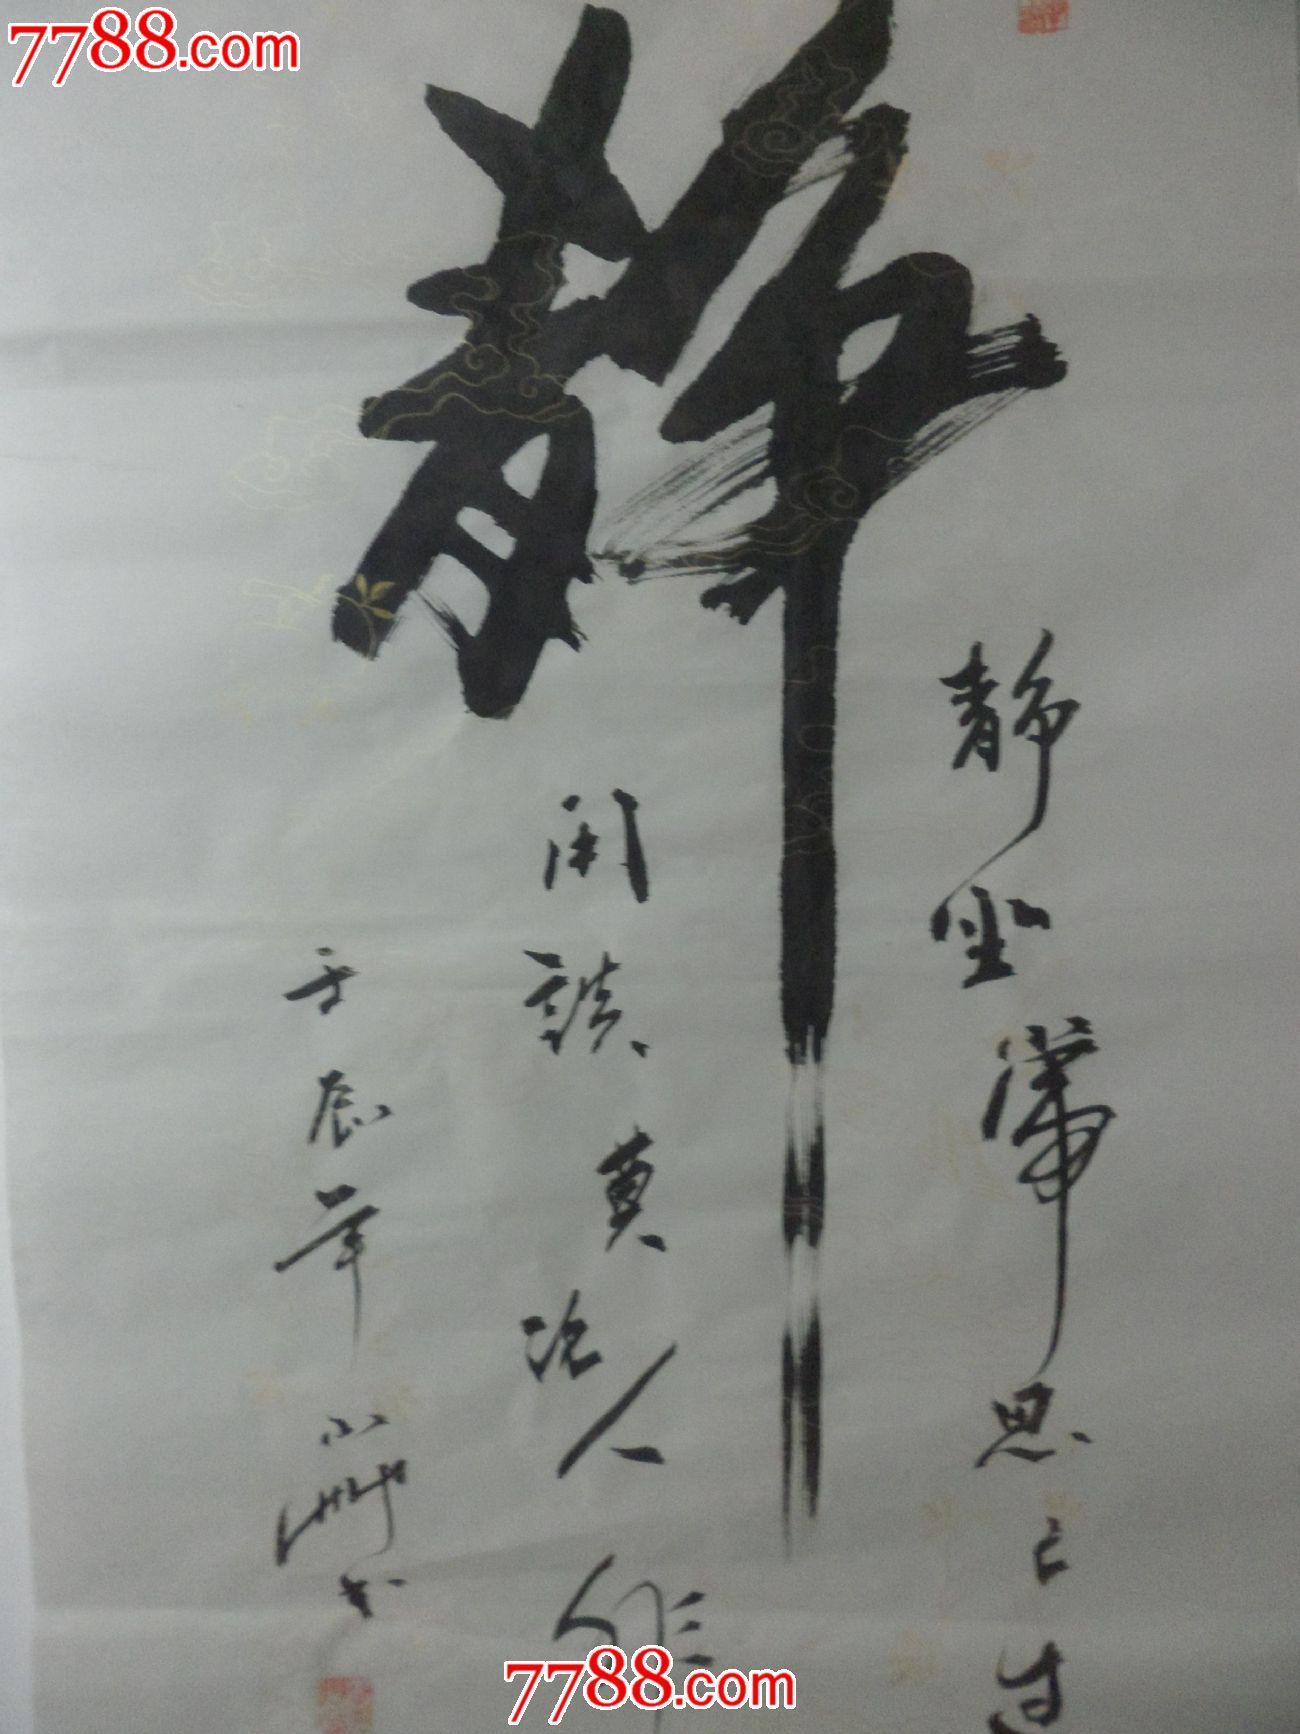 7788.com
静
静坐常思己过
闲谈莫论人非
壬辰年小洲书
7788.com